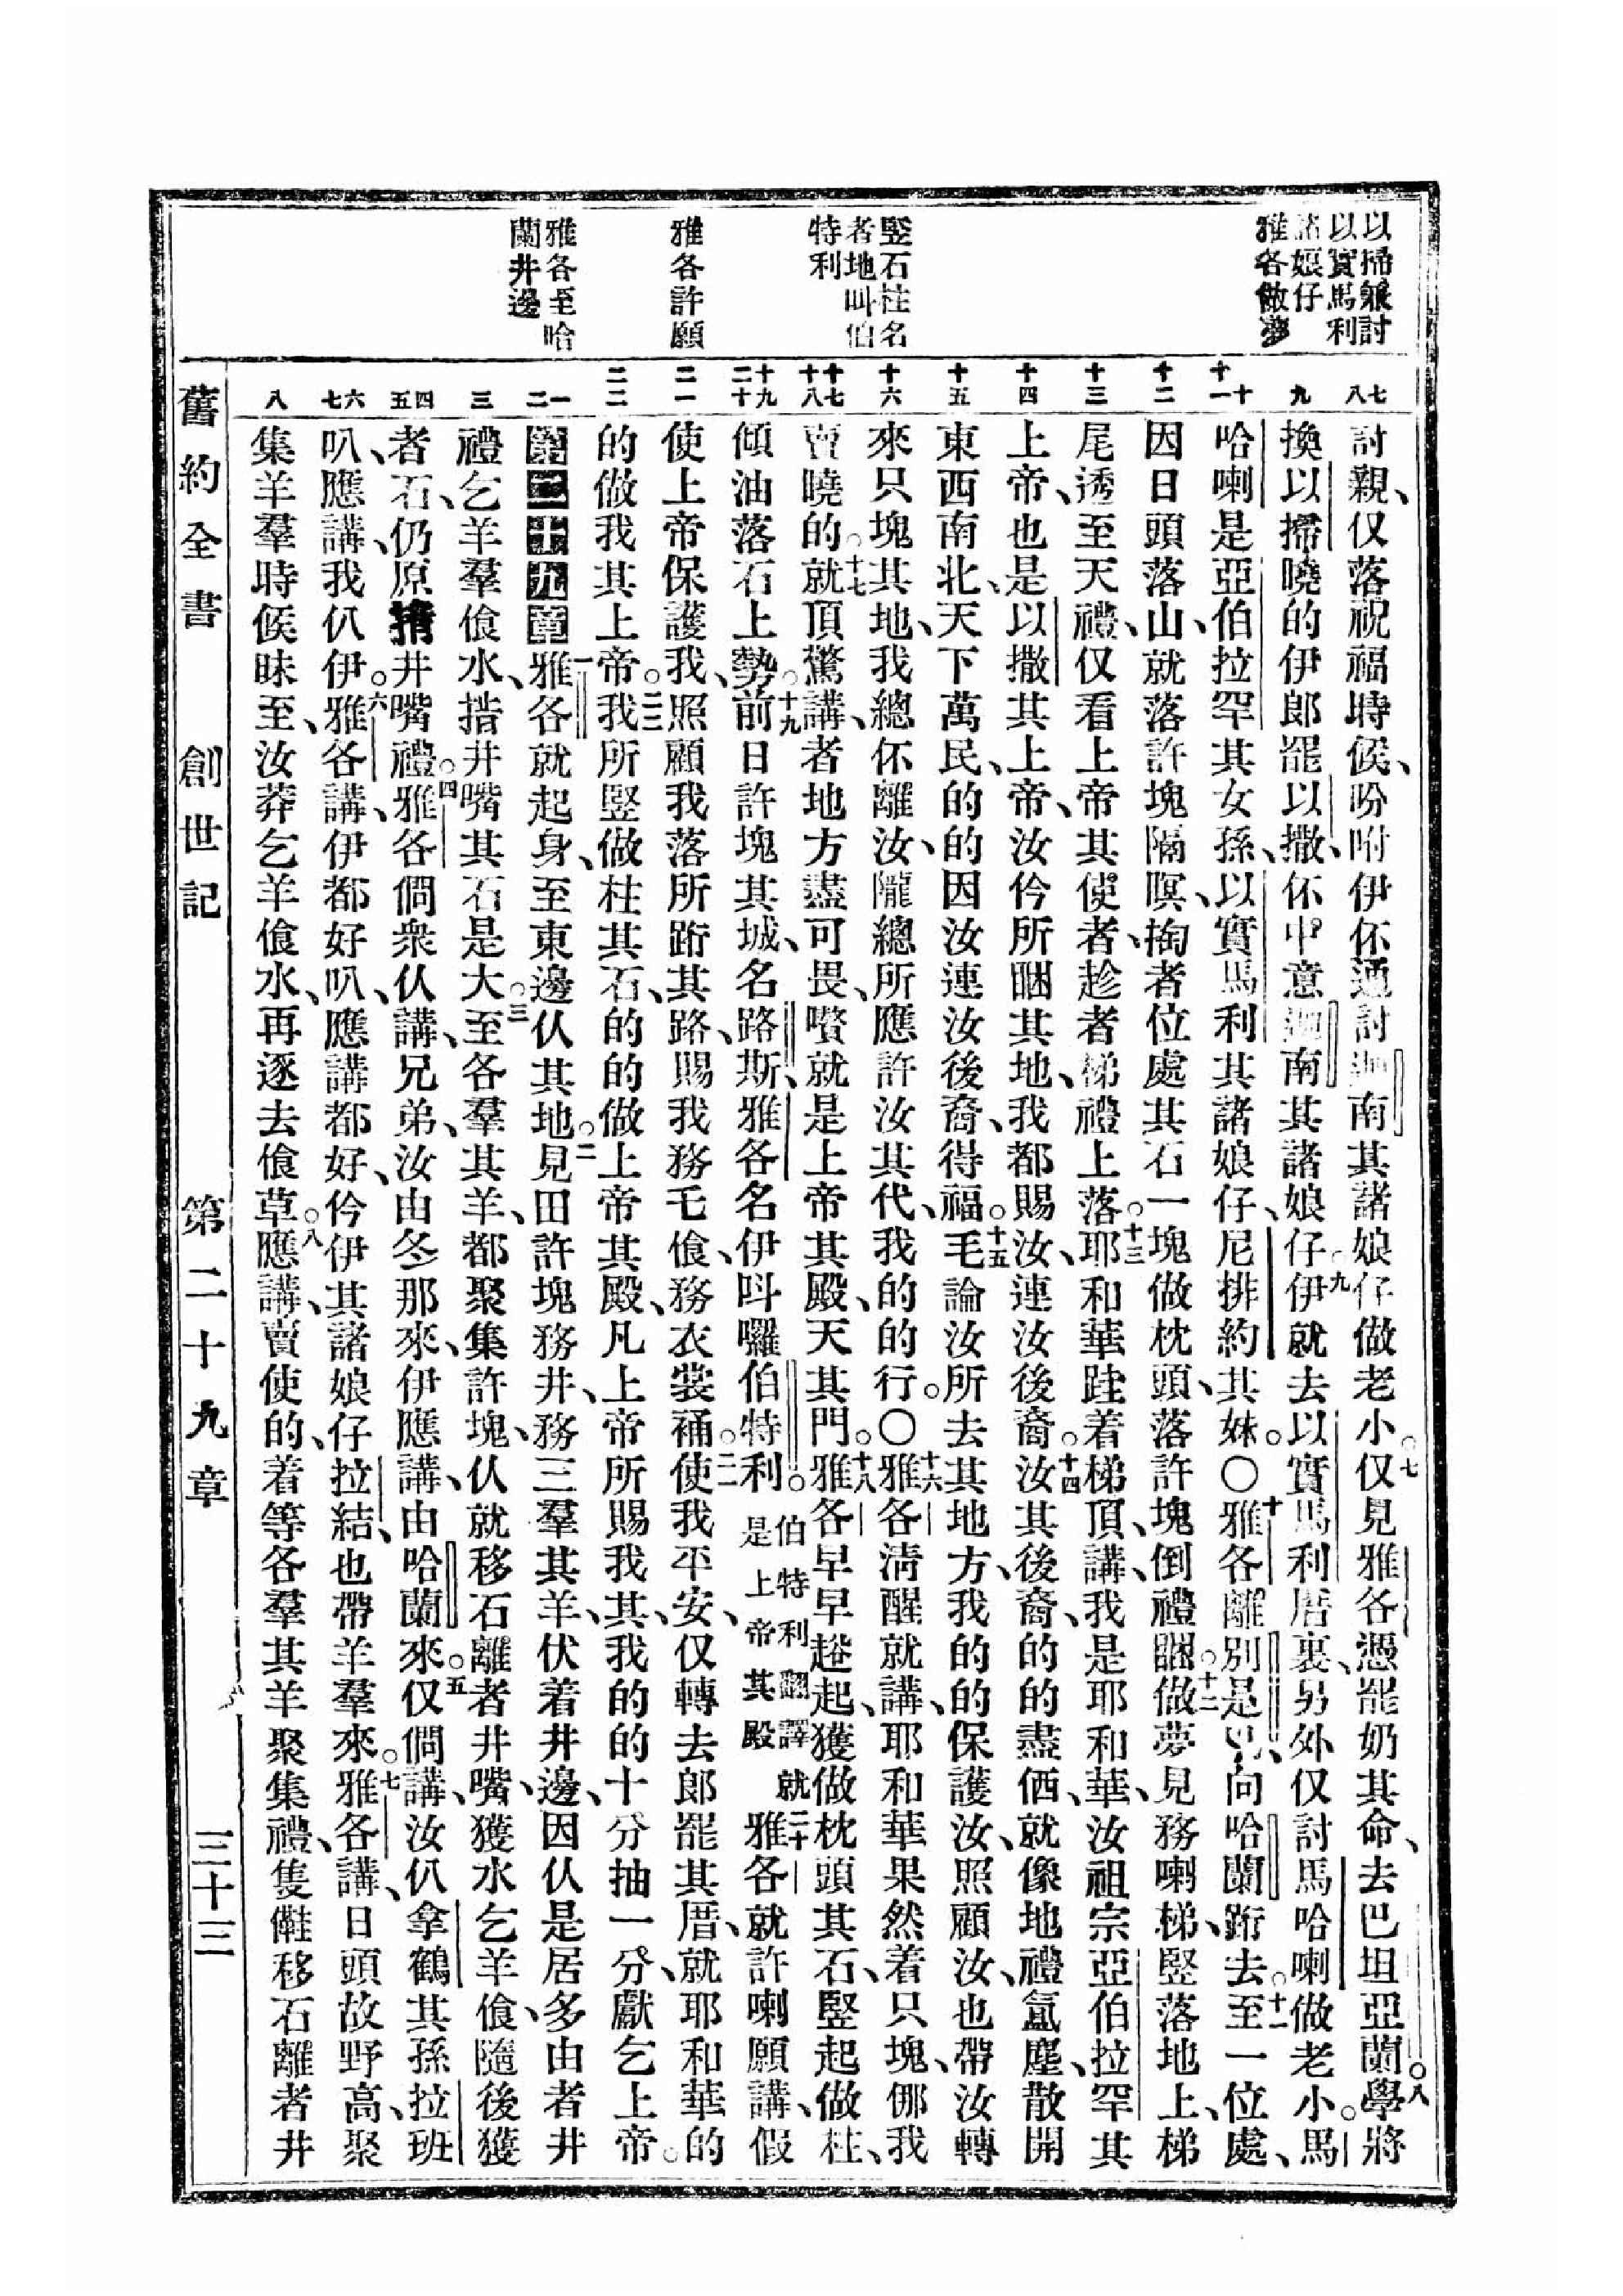 以掃躼討
以實馬利
諸娘仔
雅各做夢
竪石柱名
者地叫伯
特利
雅各許願
雅各至哈
蘭井邊
七 八
九
十 十一
十二
十三
十四
十五
十六
十七 十八
十九 二十
二一
二二
一 二
三
四 五
六 七
八
討親、仅落祝福時候、吩咐伊伓通討迦南其諸娘仔做老小、○七仅見雅各憑罷奶其命、去巴坦亞蘭○八學將
換以掃曉的伊郎罷以撒、伓中意迦南其諸娘仔、○九伊就去以實馬利厝裏、另外仅討馬哈喇做老小。馬
哈喇是亞伯拉罕其女孫、以實馬利其諸娘仔、尼排約其妹。○十雅各離別是巴、向哈蘭䟰去。○十一至一位處、
因日頭落山、就落許塊隔暝、掏者位處其石一塊做枕頭、落許塊倒禮𥅴。○十二做夢見務喇梯、竪落地上、梯
尾透至天禮、仅看上帝其使者、趁者梯禮上落。○十三耶和華跬着梯頂、講、我是耶和華、汝祖宗亞伯拉罕其
上帝、也是以撒其上帝、汝仱所𥅴其地、我都賜汝、連汝後裔。○十四汝其後裔、的的盡㑚、就像地禮氳塵、散開
東西南北、天下萬民、的的因汝連汝後裔、得福。○十五毛論汝所去其地方、我的的保護汝、照顧汝、也帶汝轉
來只塊其地、我總伓離汝、隴總所應許汝其代、我的的行。○○十六雅各淸醒就講、耶和華果然着只塊、㑚我
賣曉的。○十七就頂驚講、者地方盡可畏、嚽就是上帝其殿、天其門。○十八雅各早早䞘起、獲做枕頭其石、竪起做柱、
傾油落石上勢。○十九前日許塊其城、名路斯、雅各名伊呌囉伯特利。伯特利翻譯就是上帝其殿 二十雅各就許喇願講、假
使上帝保護我、照顧我落所䟰其路、賜我務毛飡、務衣裳𧙕。○二一使我平安、仅轉去郎罷其厝、就耶和華的
的做我其上帝。○二二我所竪做柱其石、的的做上帝其殿、凡上帝所賜我其、我的的十分抽一分、獻乞上帝。
第二十九章 一雅各就起身、至東邊仈其地。○二見田許塊務井、務三羣其羊、伏着井邊、因仈是居多由者井
禮乞羊羣飡水、揩井嘴其石是大。○三至各羣其羊、都聚集許塊、仈就移石離者井嘴、獲水乞羊飡、隨後獲
者石、仍原揩井嘴禮。○四雅各㑱衆仈講、兄弟、汝由冬那來、伊應講、由哈蘭來。○五仅㑱講、汝仈拿鶴其孫拉班
叭、應講、我仈伊。○六雅各講、伊都好叭、應講都好、仱伊其諸娘仔拉結、也帶羊羣來。○七雅各講、日頭故野高、聚
集羊羣時候昧至、汝莽乞羊飡水、再逐去飡草。○八應講、賣使的、着等各羣其羊聚集禮、隻㒸移石離者井
舊約全書 創世記 第二十九章 三十三